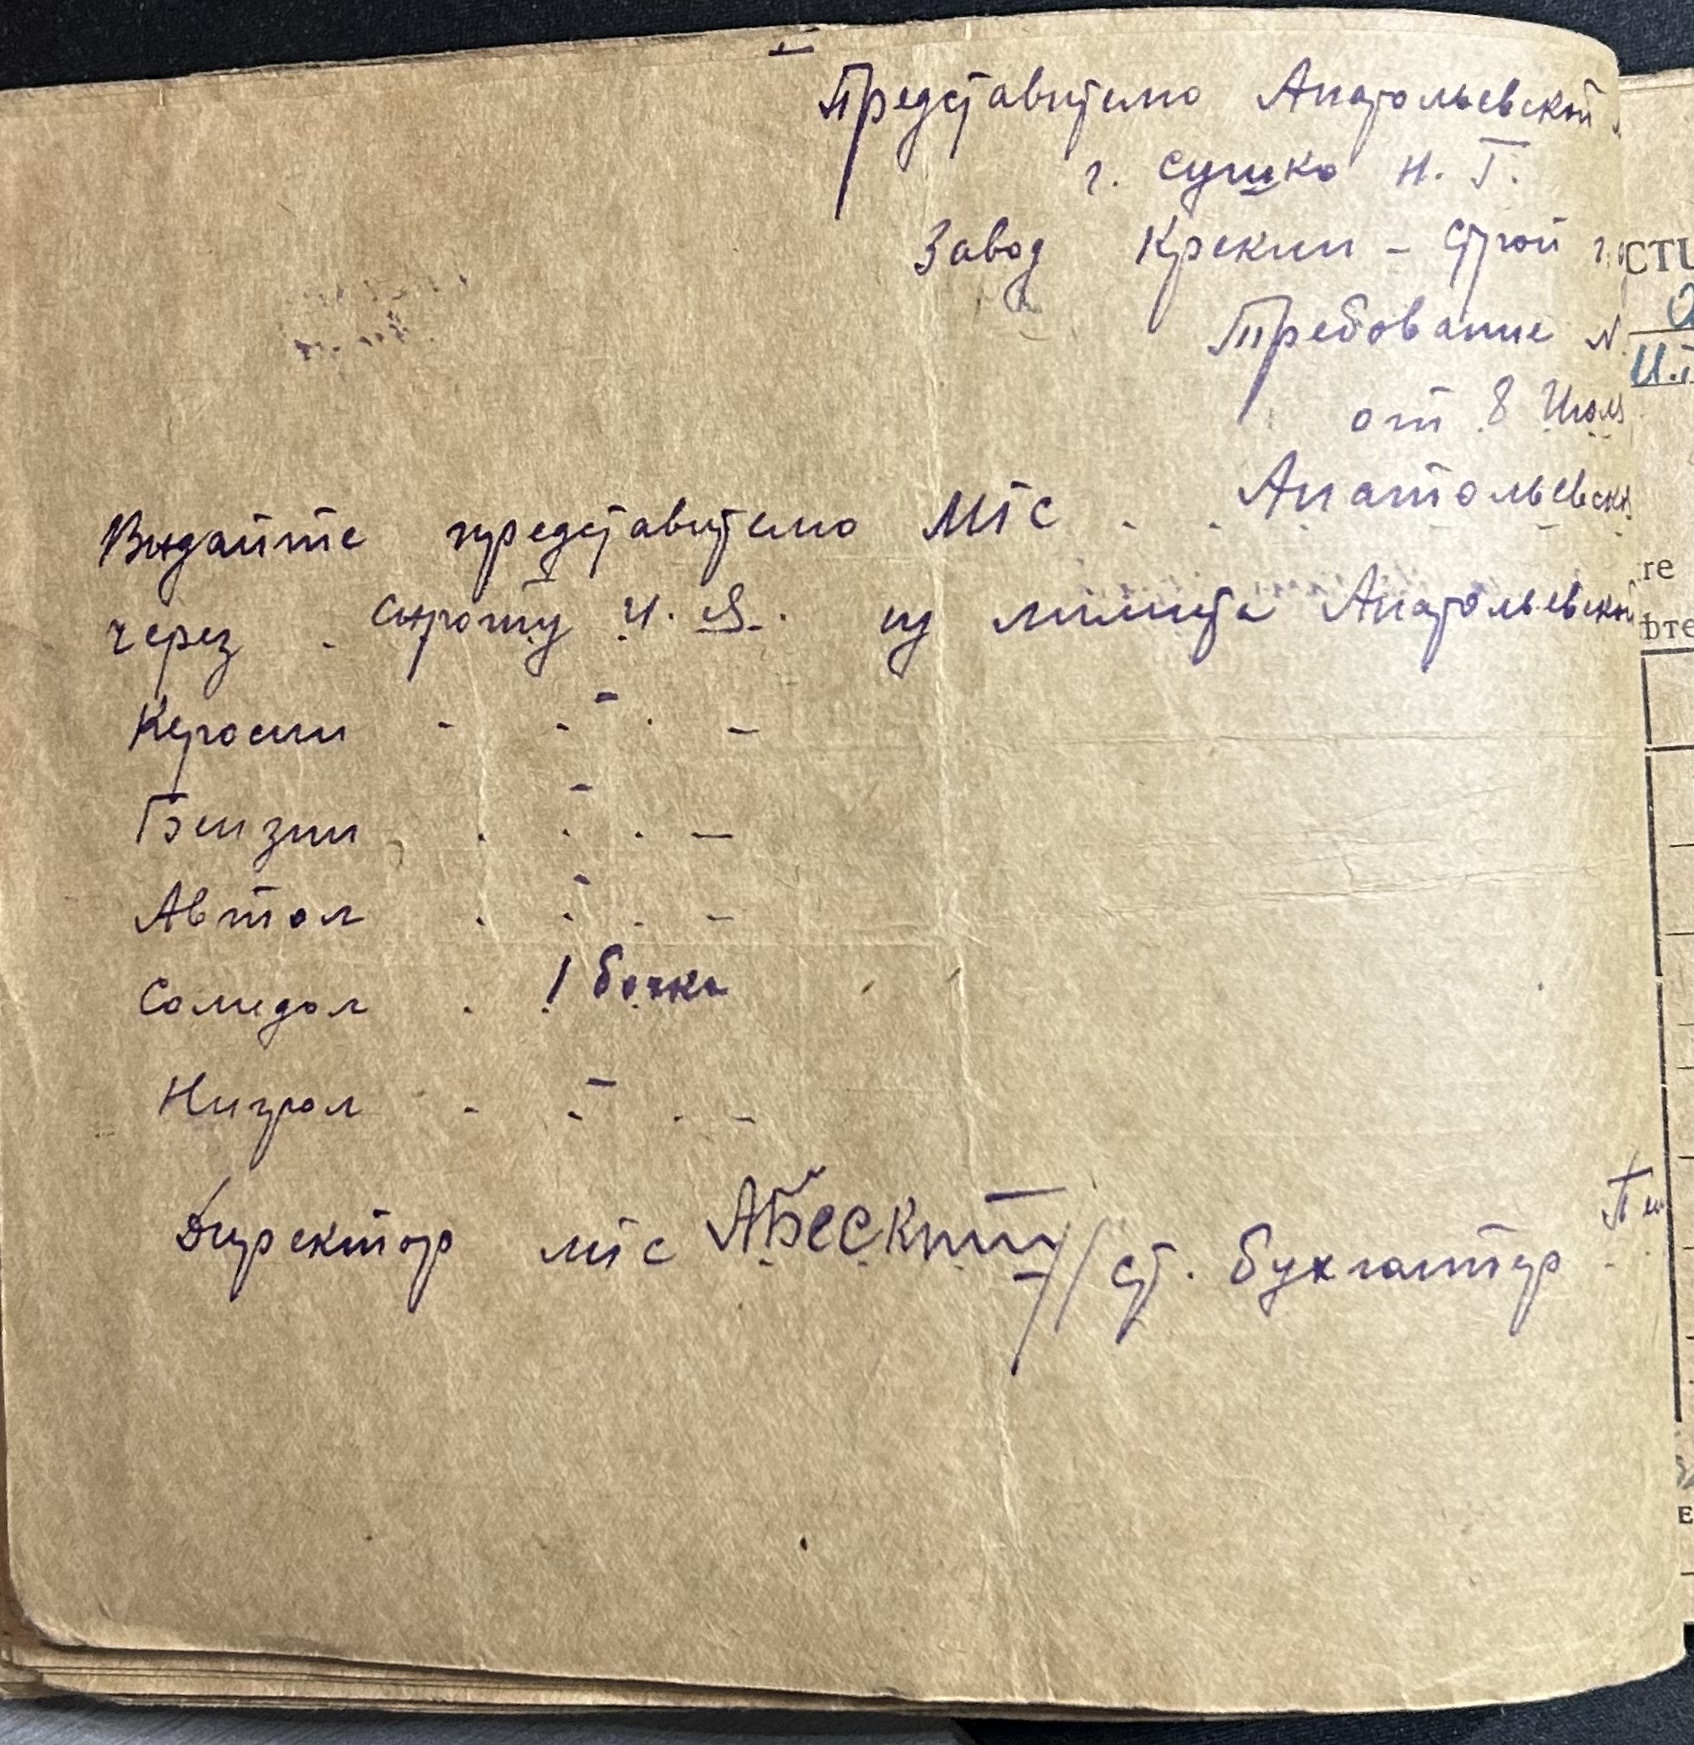 Представителю Анатольевской
г. Сушко Н. Г.
Завод Крекин - Строй г.
Требование №
от 8 Июля
Выдайте представителю МТС . . Анатольевск
через . Сироту И. Я. из лимита Анатольевской
Керосин - - - . -
Бензин . . . -
Автол . . . -
Солидол . 1 бочка
Нигрол - - . -
Директор МТС АБескит // ст. бухгалтер
СТЬ
И.
те
фте